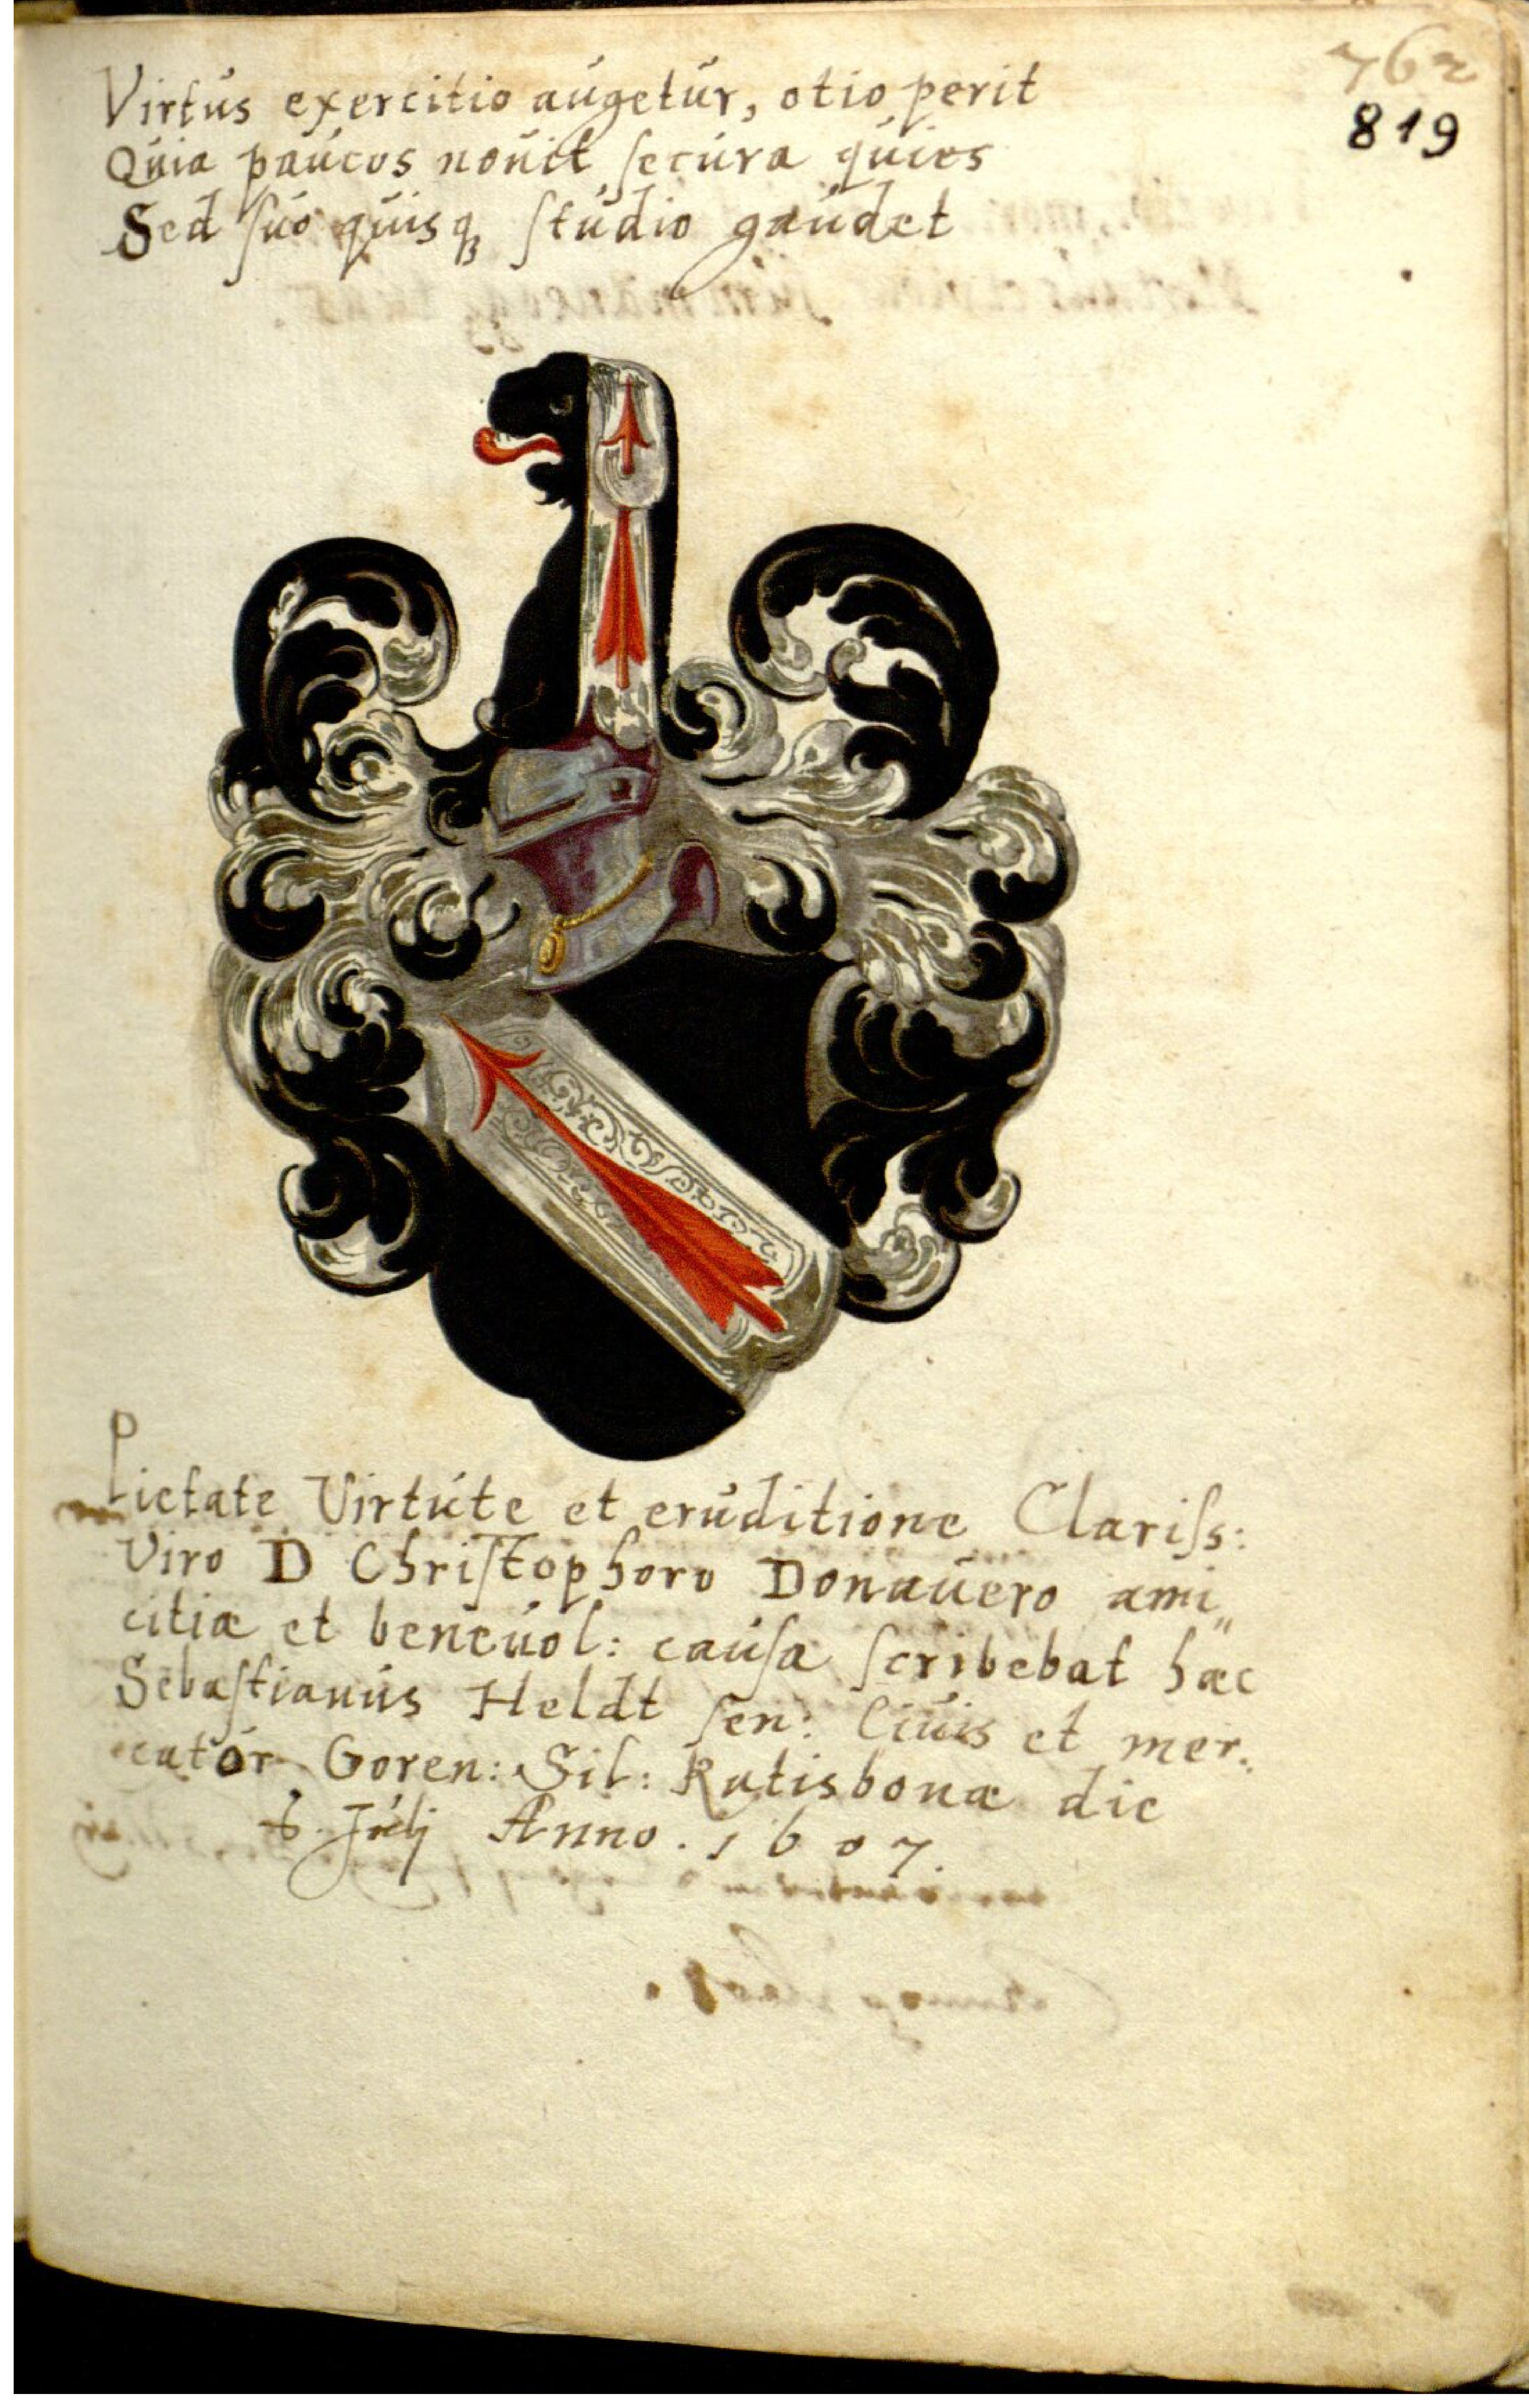 762
819
Virtus exercitio augetur, otio perit
Quia paucos nouit secura quies
Sed suo quisqꝫ studio gaudet
Pietate Virtute et eruditione Clariss:
Viro D Christophoro Donauero ami„
citiæ et beneuol: causa scribebat hæc
Sebastianus Heldt sen: Ciuis et mer„
cator Goren: Sil: Ratisbonæ die
6. Julij Anno. 1607.